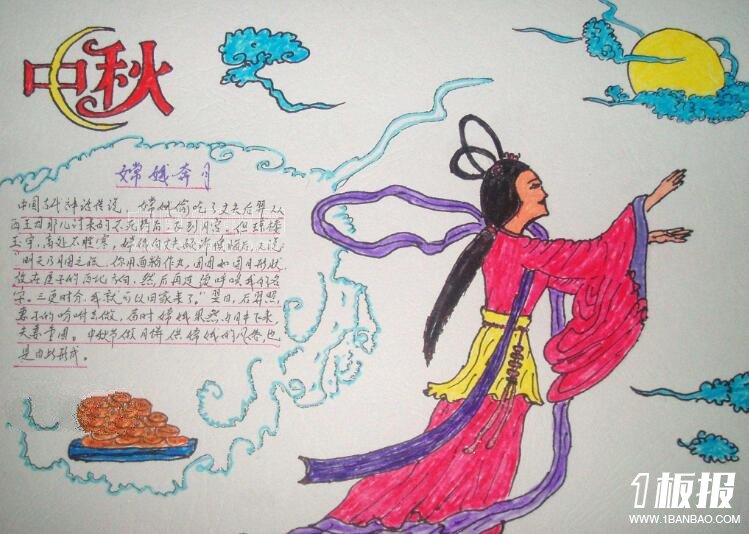 中秋
嫦娥奔月
中国古代神话传说，嫦娥偷吃了丈夫后羿从
西王母那儿讨来的不死药后，飞到月宫。但琼楼
玉宇，高处不胜寒，嫦娥向丈夫倾诉懊悔后，又说：
"明天乃月圆之候，你用面粉作丸，团团如圆月形状，
放在屋子的西北方向，然后再连续呼唤我的名
字。三更时分，我就可以回家来了。"翌日，后羿照
妻子的吩咐去做，届时嫦娥果然由月中下来，
夫妻重圆。中秋节做月饼供嫦娥的风俗，也
是由此形成。
1板报
WWW.1BANBAO.COM